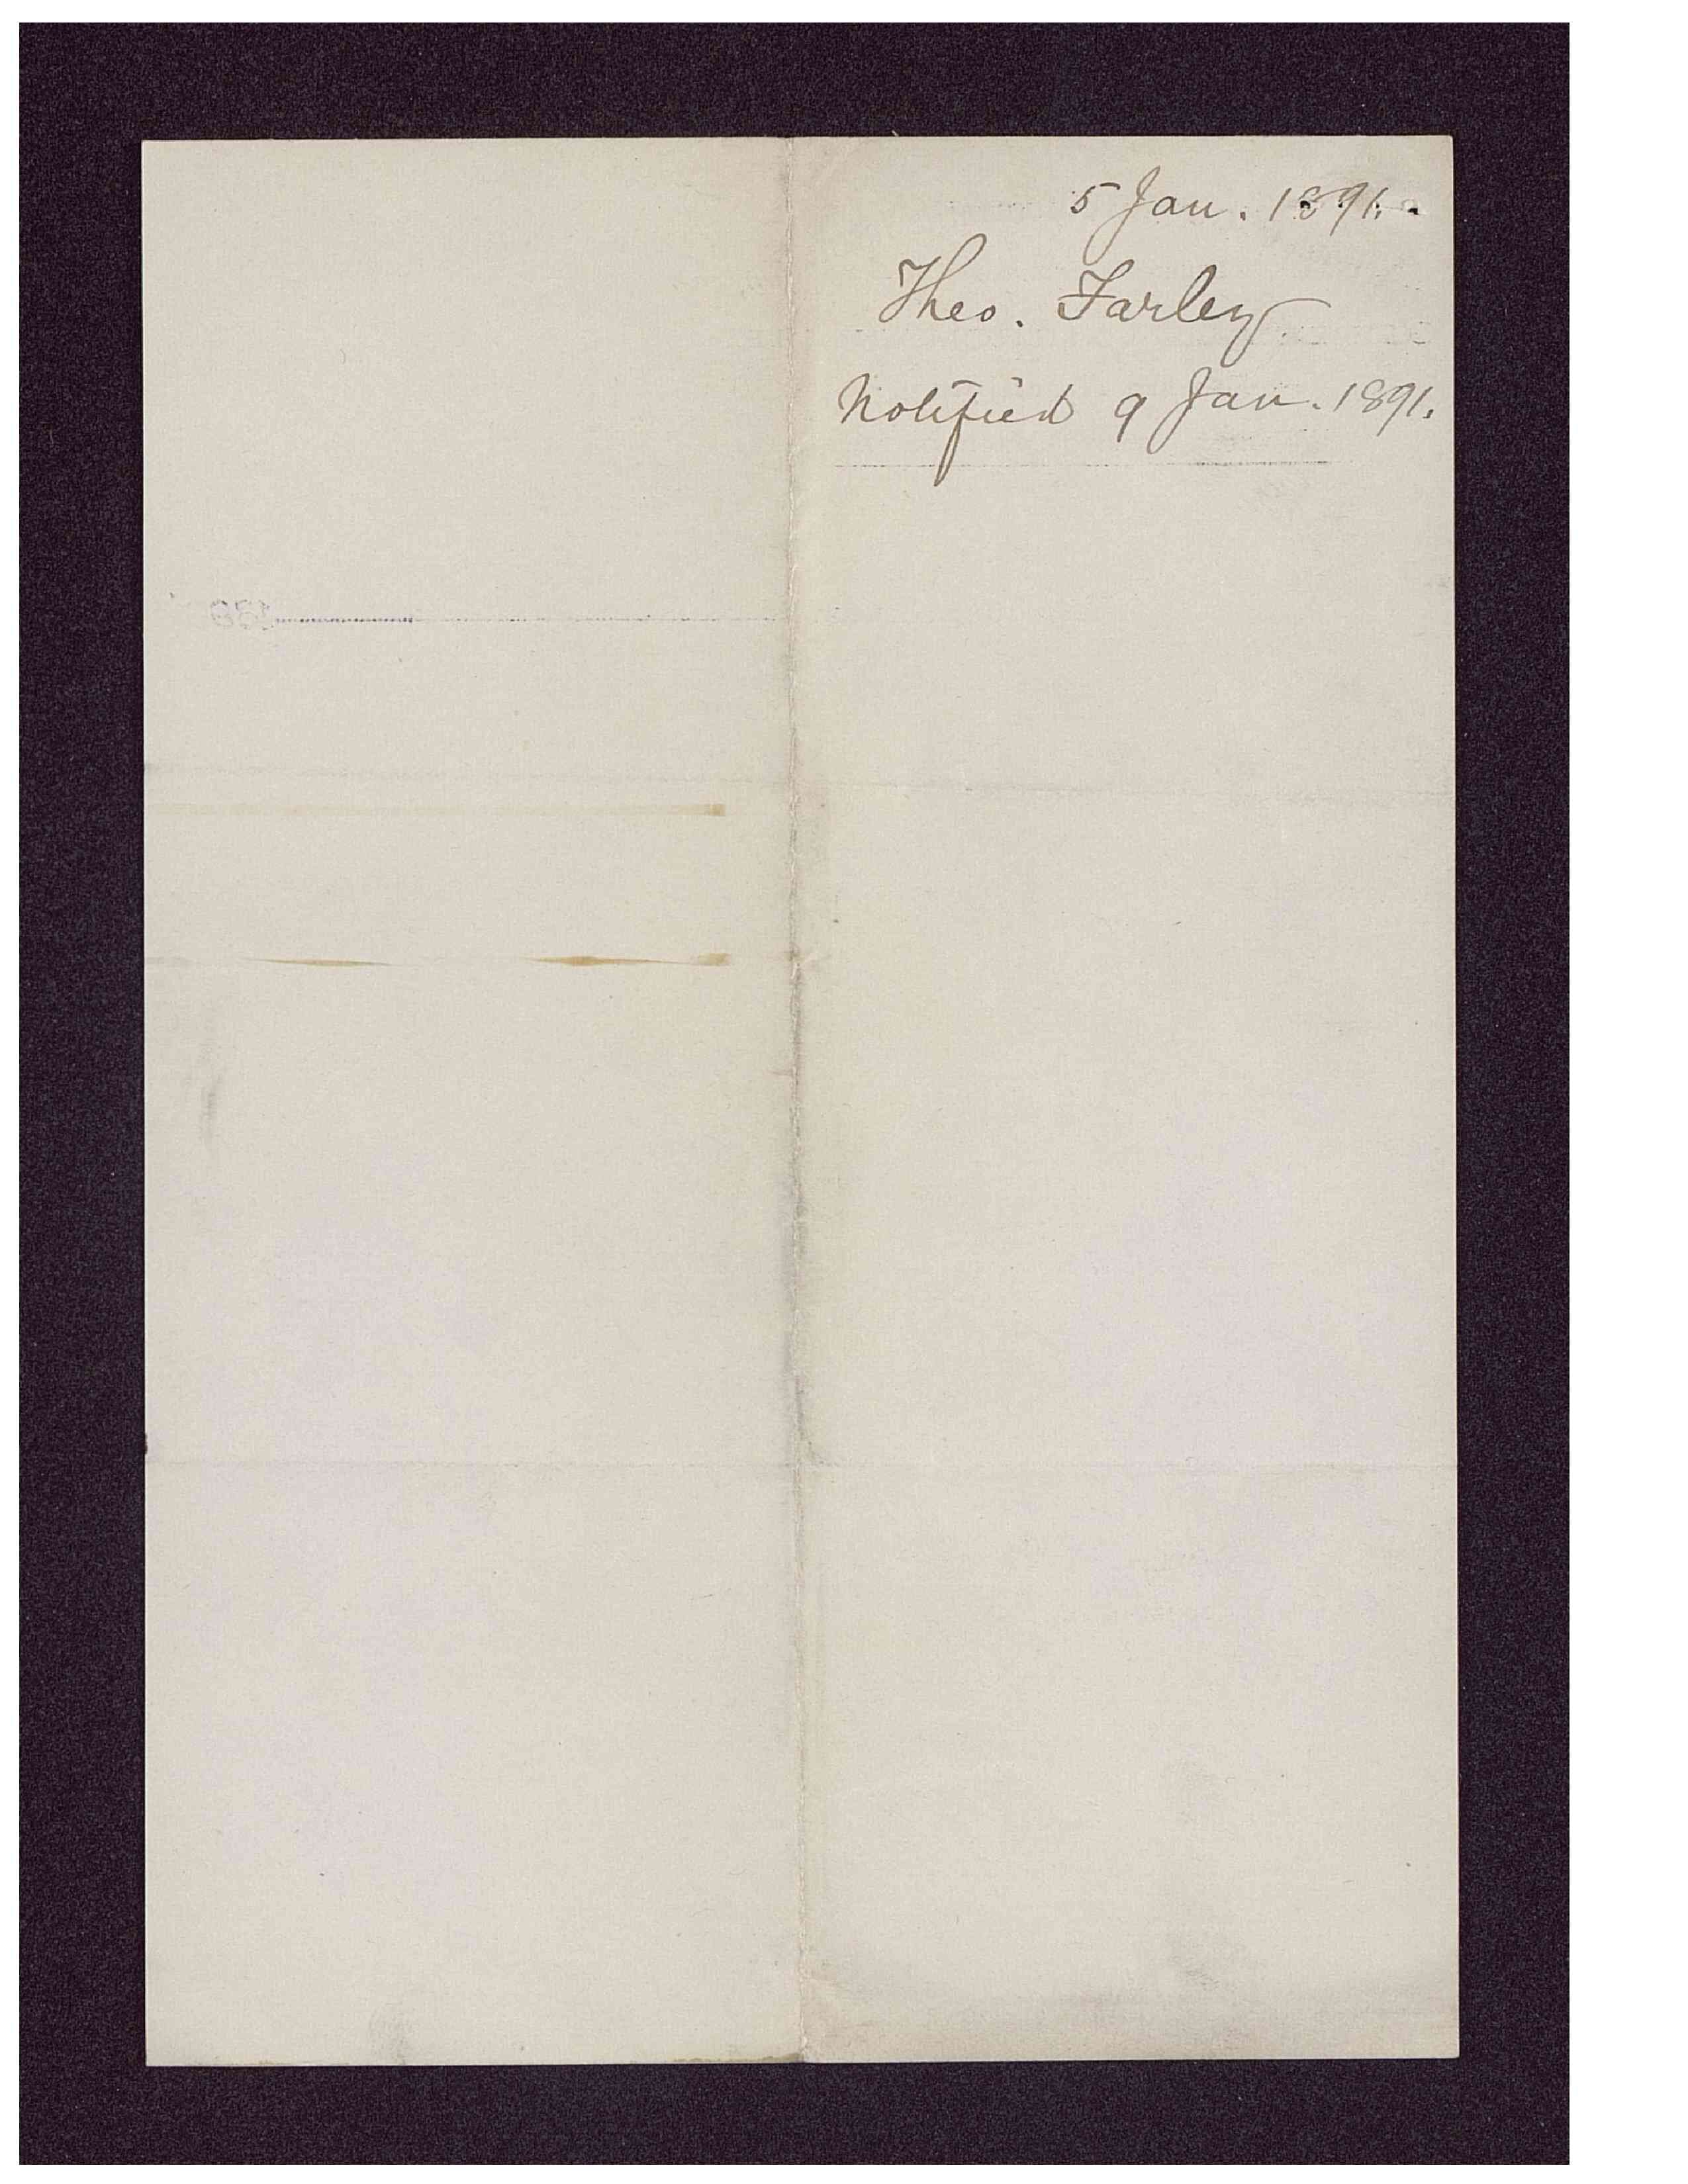 5 Jan. 1891.
Theo. Farley
Notified 9 Jan. 1891.